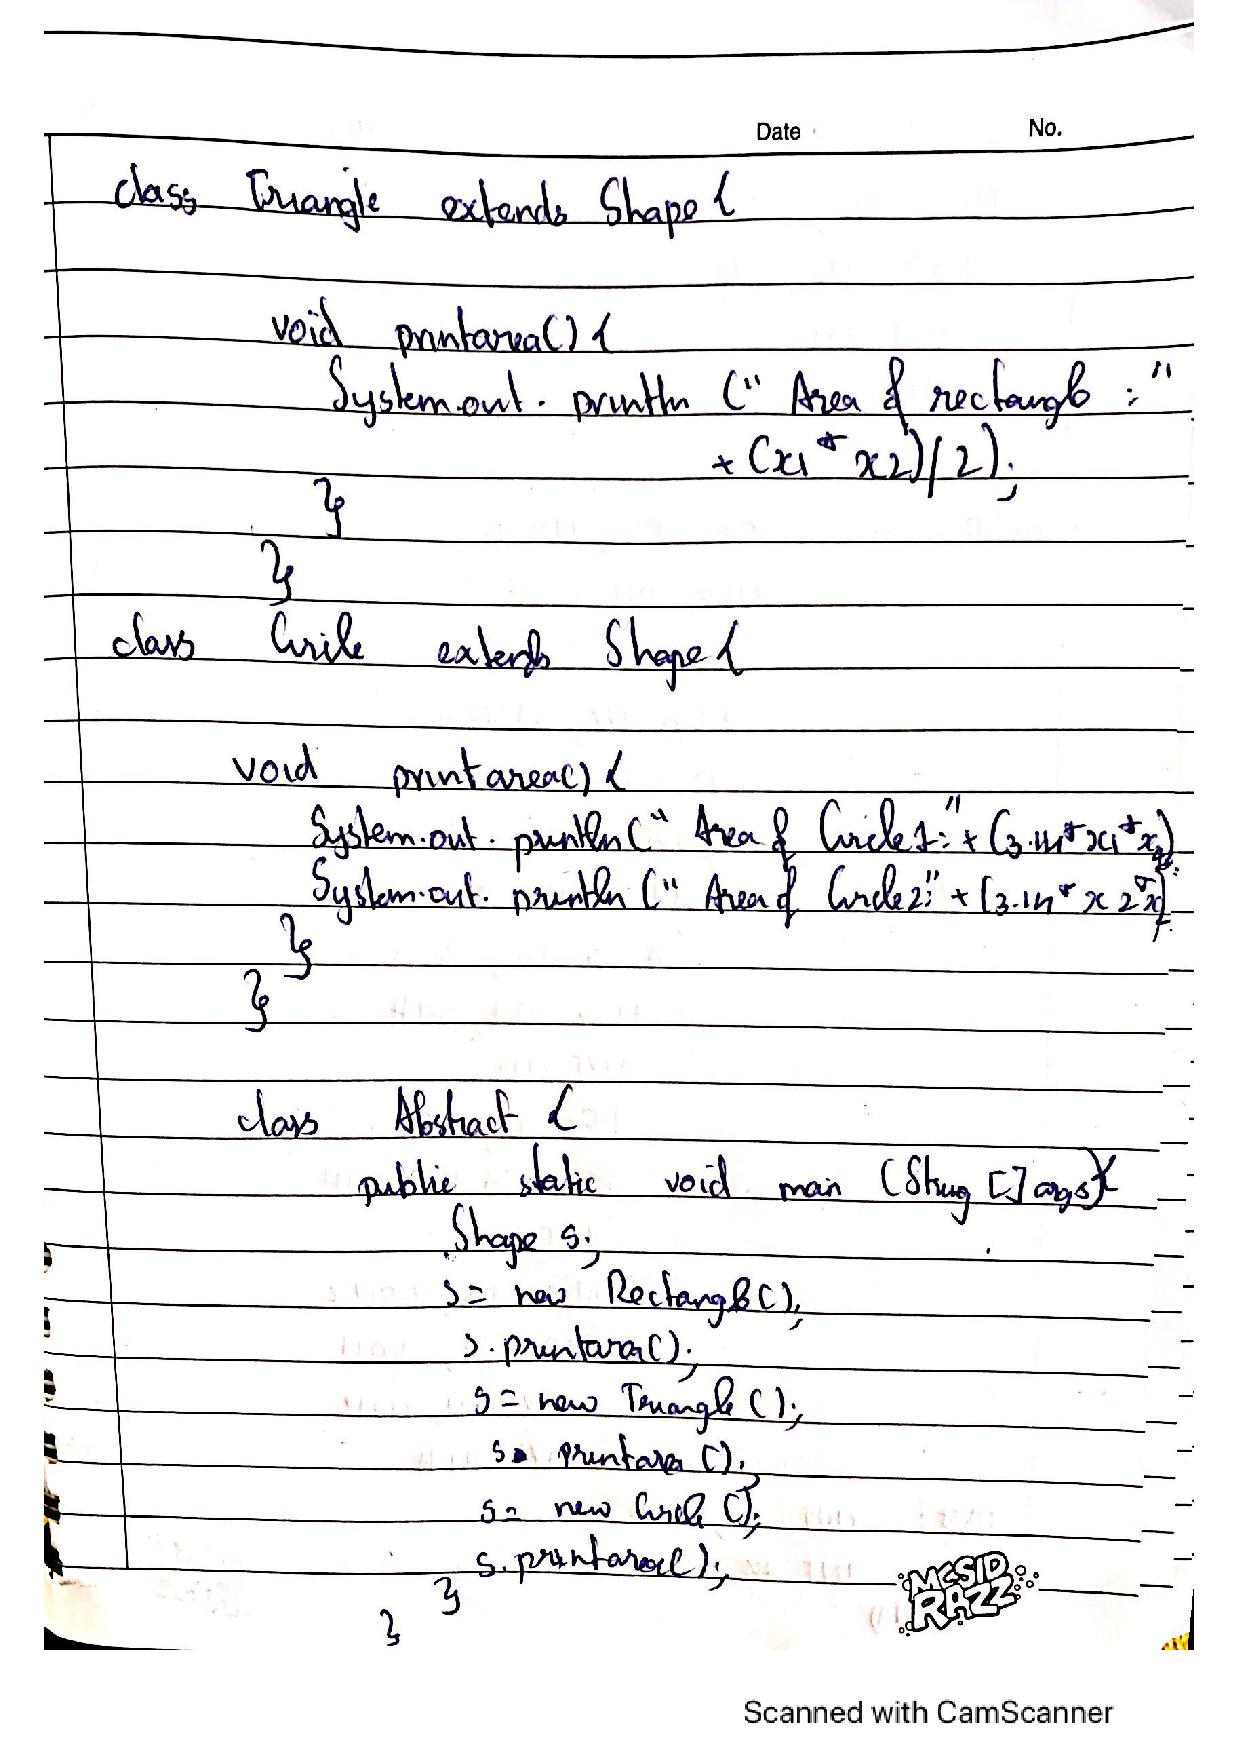 Date No.
class Triangle extends Shape {
void printarea() {
System.out. println (" Area of rectangle : "
+ (x1 * x2)/2);
}
}
class Circle extends Shape {
void printarea() {
System.out. println (" Area of Circle1: " + (3.14*x1*x1);
System.out. println (" Area of Circle2:" + (3.14* x2*
}
}
class Abstract {
public static void main (String [] args) {
Shape s;
s= new Rectangle();
s.printara();
s= new Triangle ();
s. printara ();
s= new Circle ();
s.printarea();
}
}
MCSID
RAZZ
Scanned with CamScanner